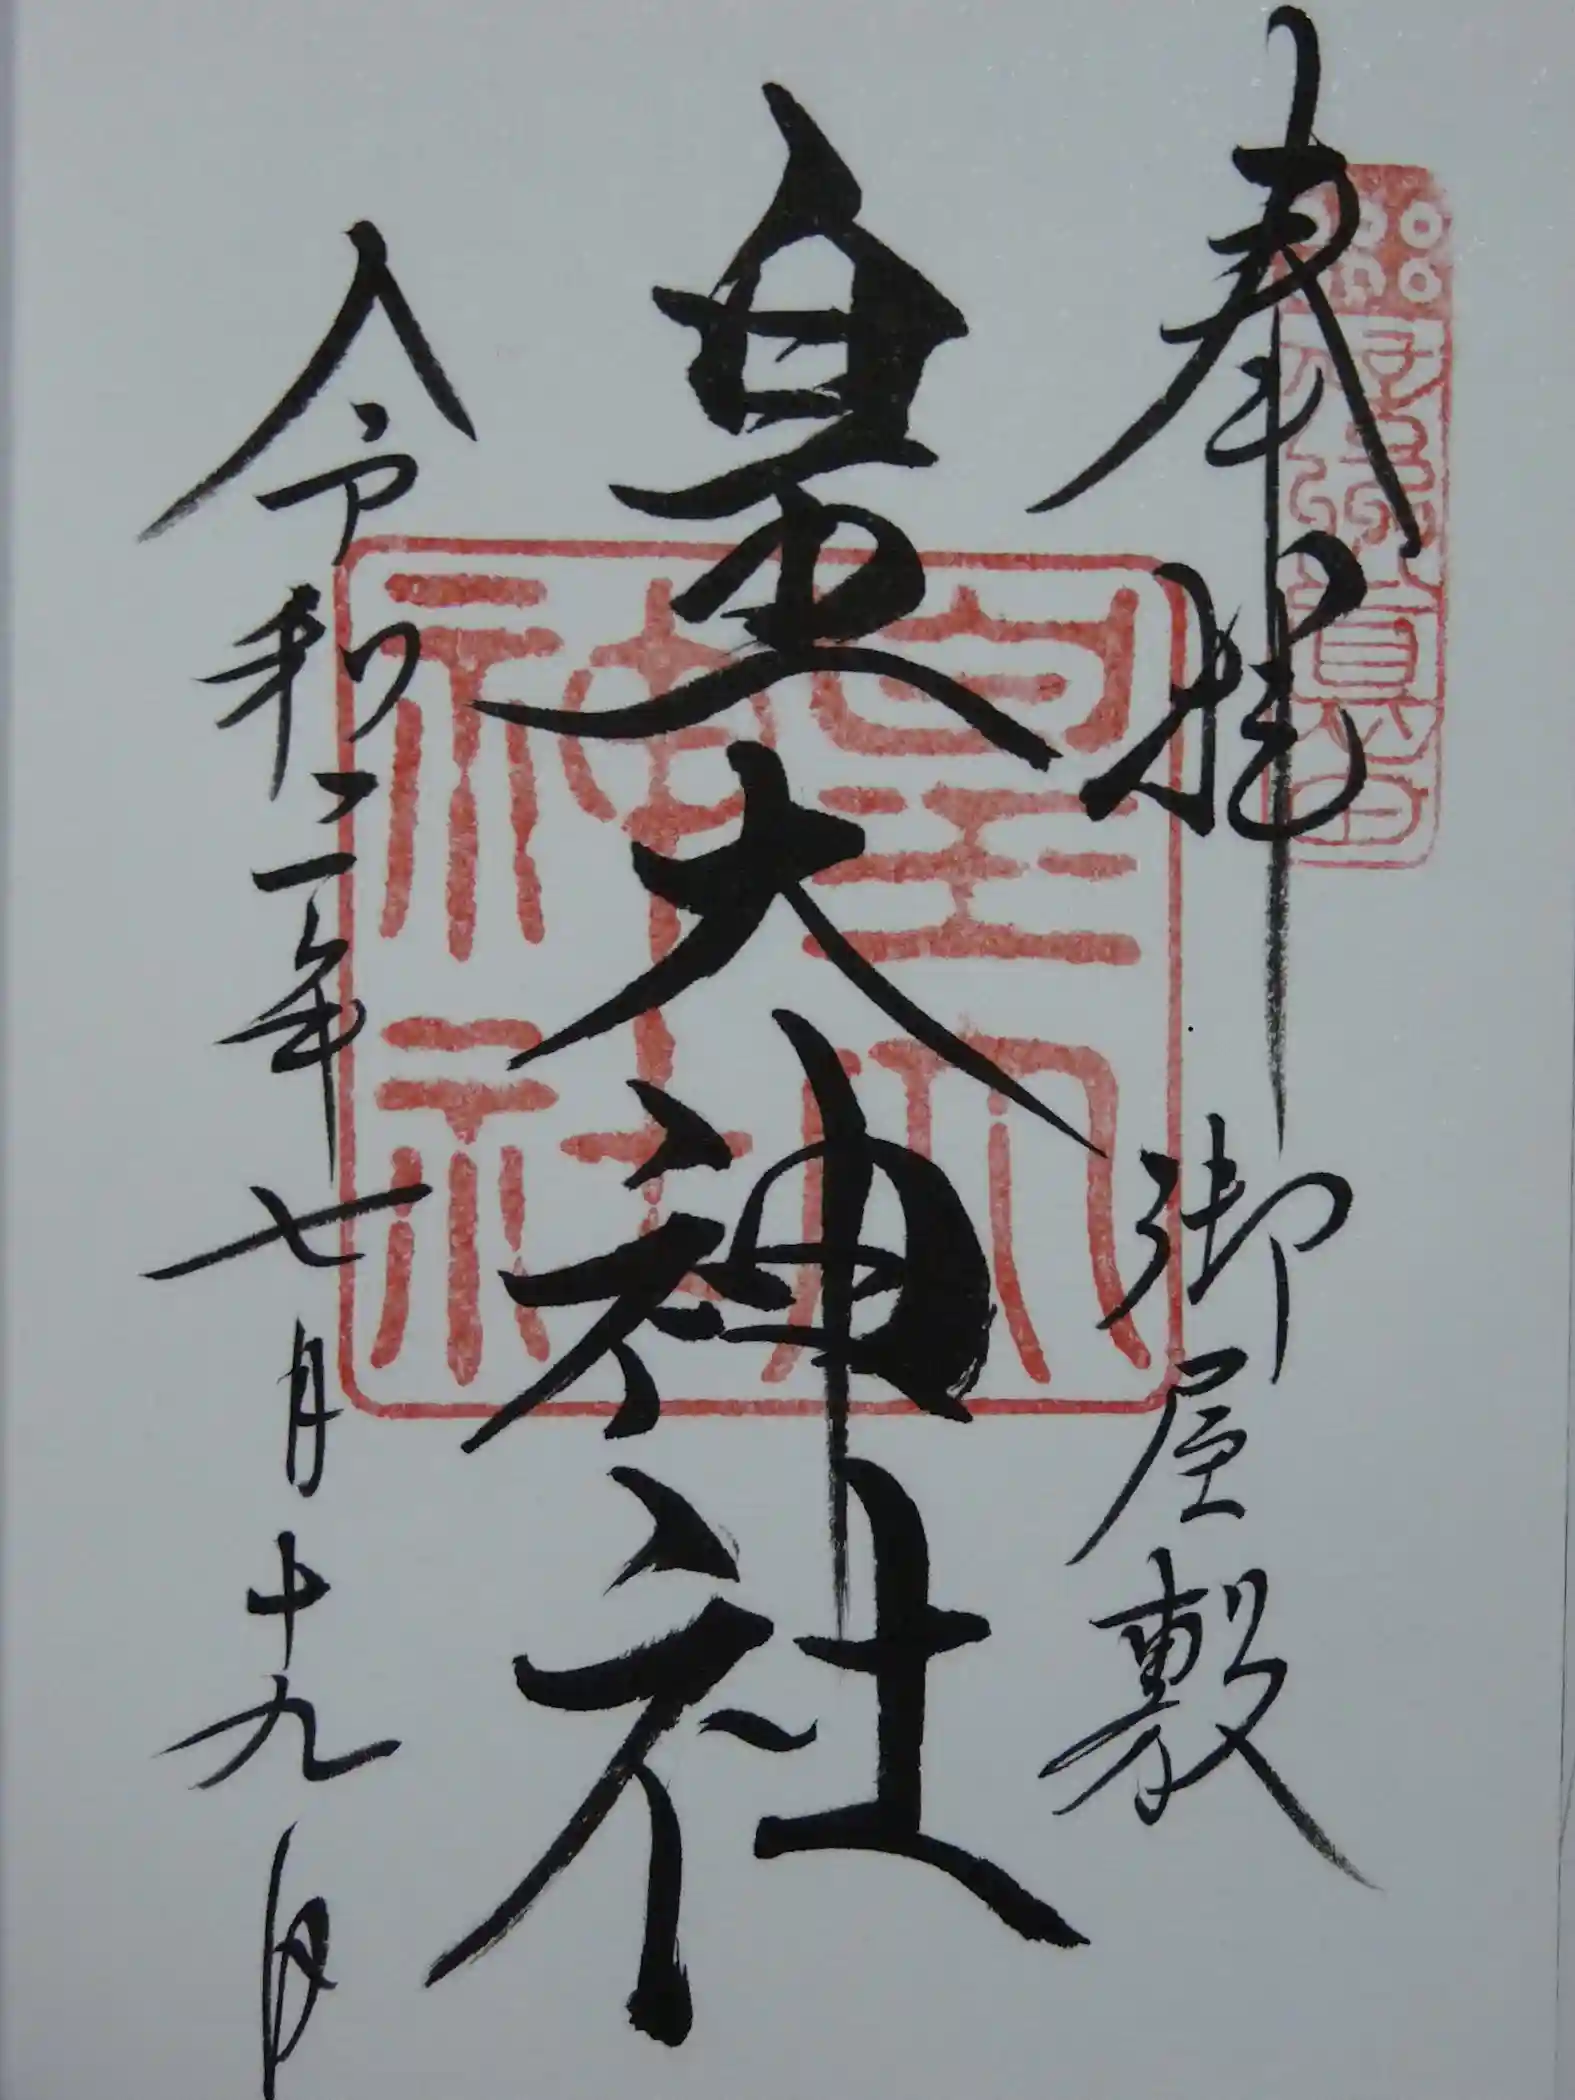 奉拝 御屋敷
皇大神社
皇大
神社
令和二年七月十九日